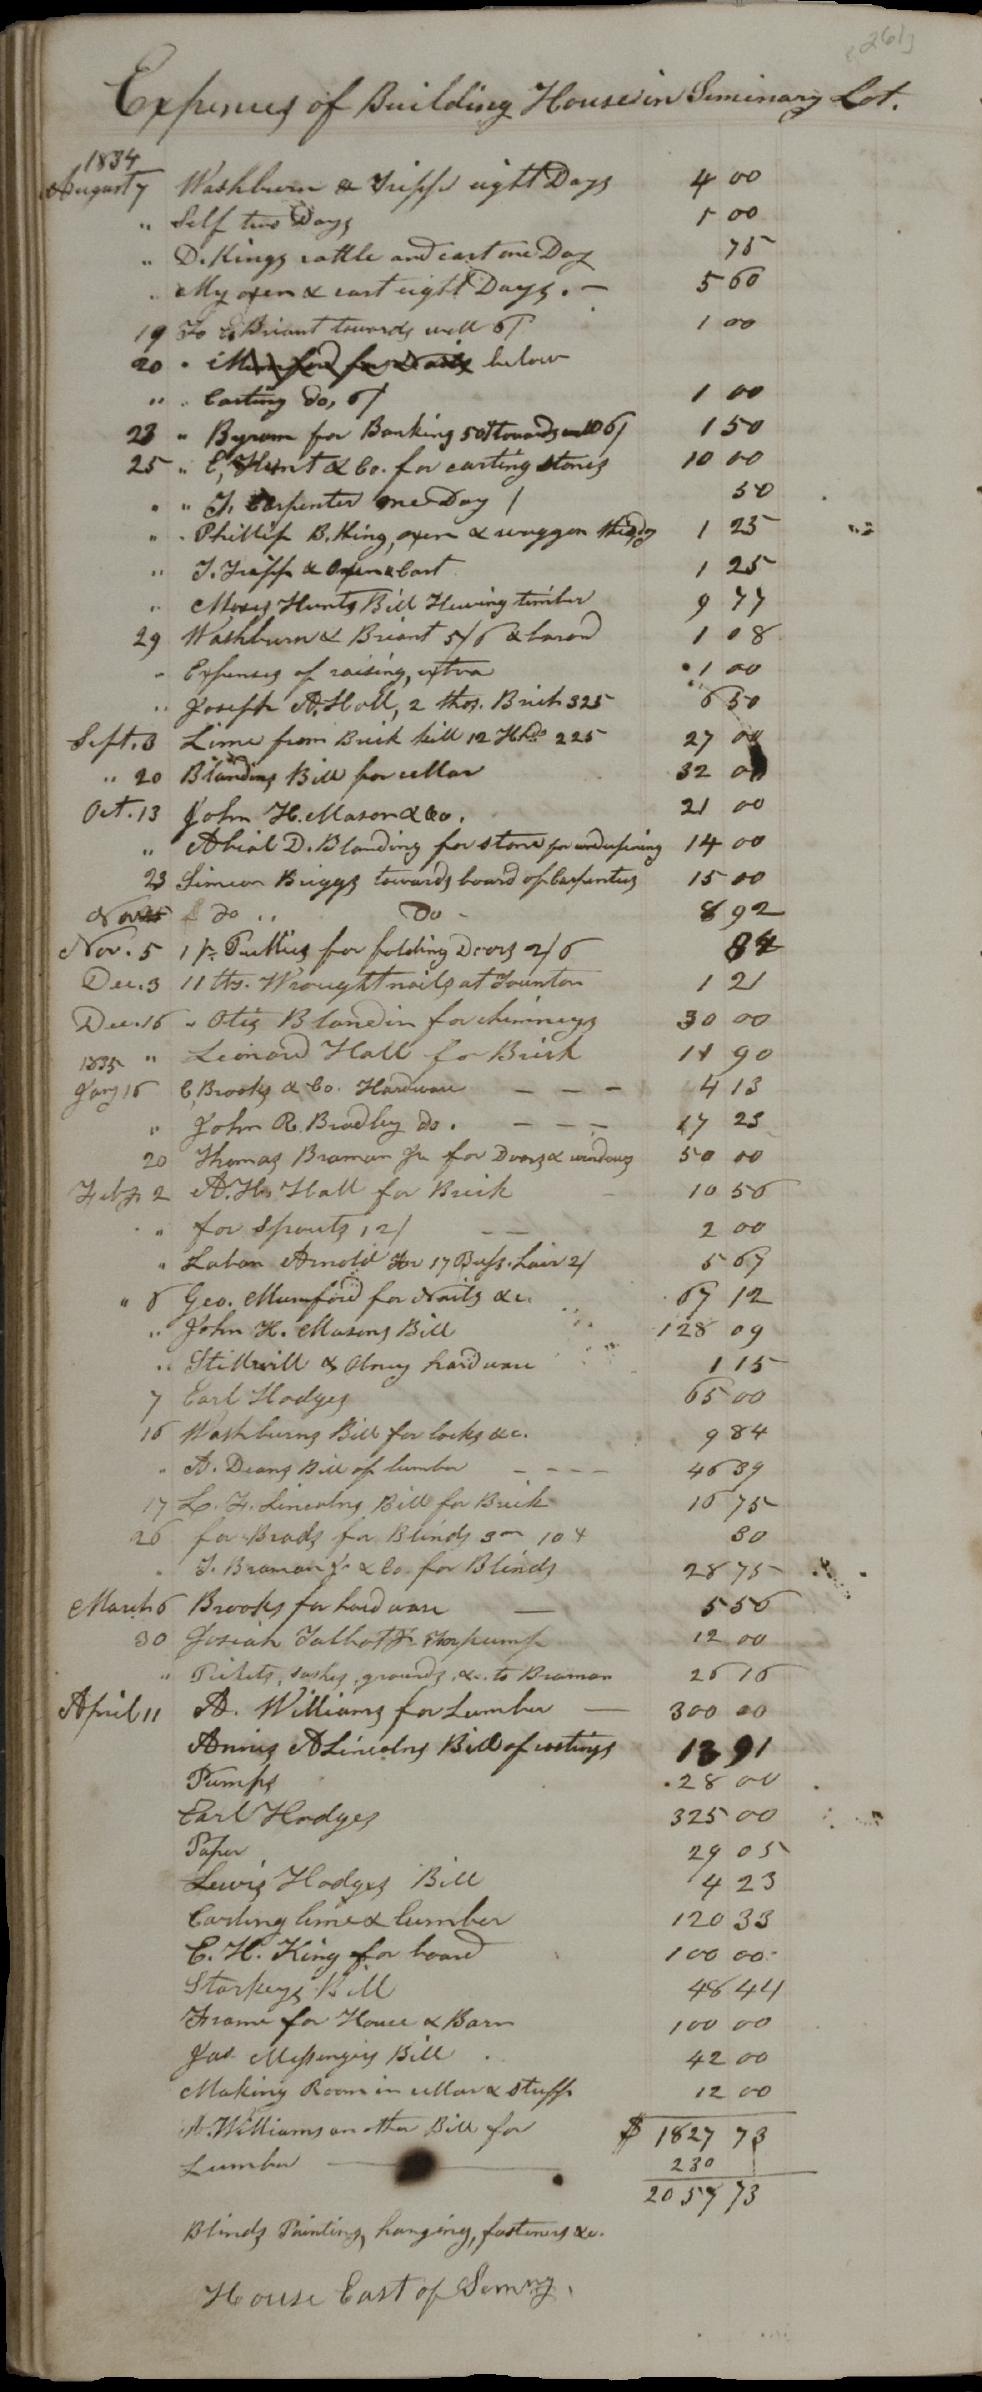 261
Expences of Building House in Seminary Lot.
1834
August 7 Washburn & Tripp eight Days 4 00
" Self two Days 1 00
" D. Kings cattle and cart one Day 75
" My oxen & cart eight Days. - 5 60
19 To Briant towards well 6/ 1 00
20 " below
" " Carting do, 6/ 1 00
23 " Byram for Banking 50 towards well 6/ 1 50
25 " E, Hunt & Co. for carting stones 10 00
" " J. Carpenter one Day / 50
" " Phillip B. King, oxen & waggon 1 25
" J. Tripp & Oxen & Cart 1 25
" Moses Hunts Bill Hewing timber 9 77
29 Washburn & Briant 5/6 & board 1 08
" Expenses of raising, extra 1 00
" Joseph A. Hall, 2 thos. Brick 325 6 50
Sept. 3 Lime from Brick kill 12 Hhds 225 27 00
" 20 Blandins Bill for cellar 32 00
Oct. 13 John H. Mason & Co. 21 00
" Abial D. Blanding for stone for underpining 14 00
23 Simeon Briggs towards board of Carpenters 15 00
Nov do " Do - 8 92
Nov. 5 1 pr. Pullies for folding Doors 2/6 84
Dec. 3 11 lbs. Wrought nails at Taunton 1 21
Dec. 16 " Otis Blandin for chimneys 30 00
" Leonard Hall for Brick 11 90
1835
Jany 16 C, Brooks & Co. Hardware - - - 4 13
" John R. Bradley do. - - - 17 25
20 Thomas Braman Jr. for Doors & windows 50 00
Feby 2 A. H. Hall for Brick 10 56
" for spouts 12/ - - 2 00
" Laban Arnold for 17 Bush. hair 2/ 5 67
" 6 Geo. Mumford for Nails &c. 67 12
" John H. Masons Bill 128 09
" Stillwill & Olney hardware 1 15
7 Earl Hodges 65 00
16 Washburns Bill for locks &c. 9 84
" A. Deans Bill of lumber - - - - 46 39
17 L. F. Lincolns Bill for Brick 16 75
26 for Brads for Blinds 3 10 30
" T. Braman Jr. & Co. for Blinds 28 75
March 6 Brooks for hardware — 5 56
30 Josiah Talbot Jr. for pump 12 00
" Pickets, sashes, grounds, &c. to Braman 26 16
April 11 A. Williams for Lumber — 300 00
Annis A Lincolns Bill of castings 13 91
Pumps 28 00
Earl Hodges 325 00
Paper 29 05
Lewis Hodges Bill 4 23
Carting lime & lumber 120 33
E. H. King for board 100 00
Starkeys Bill 48 44
Frame for House & Barn 100 00
Jas. Messengers Bill 42 00
Making Room in cellar & stuff 12 00
A. Williams another Bill for $ 1827 73
Lumber — 230
2057 73
Blinds Painting, hanging, fasteners &c.
House East of Semny.